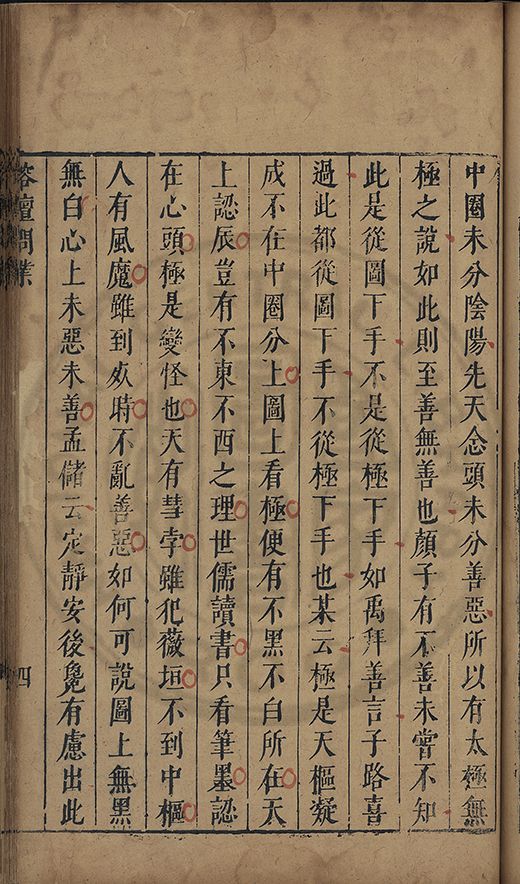 中圈未分陰陽先天念頭未分善惡所以有太極無
極之說如此則至善無善也顏子有不善未嘗不知
此是從圖下手不是從極下手如禹拜善言子路喜
過此都從圖下手不從極下手也某云極是天樞凝
成不在中圈分上圖上看極便有不黑不白所在天
上認辰豈有不東不西之理世儒讀書只看筆墨認
在心頭極是變怪也天有彗孛雖犯薇垣不到中樞
人有風魔雖到死時不亂善惡如何可說圖上無黑
無白心上未惡未善孟儲云定靜安後纔有慮出此
榕壇問業
四